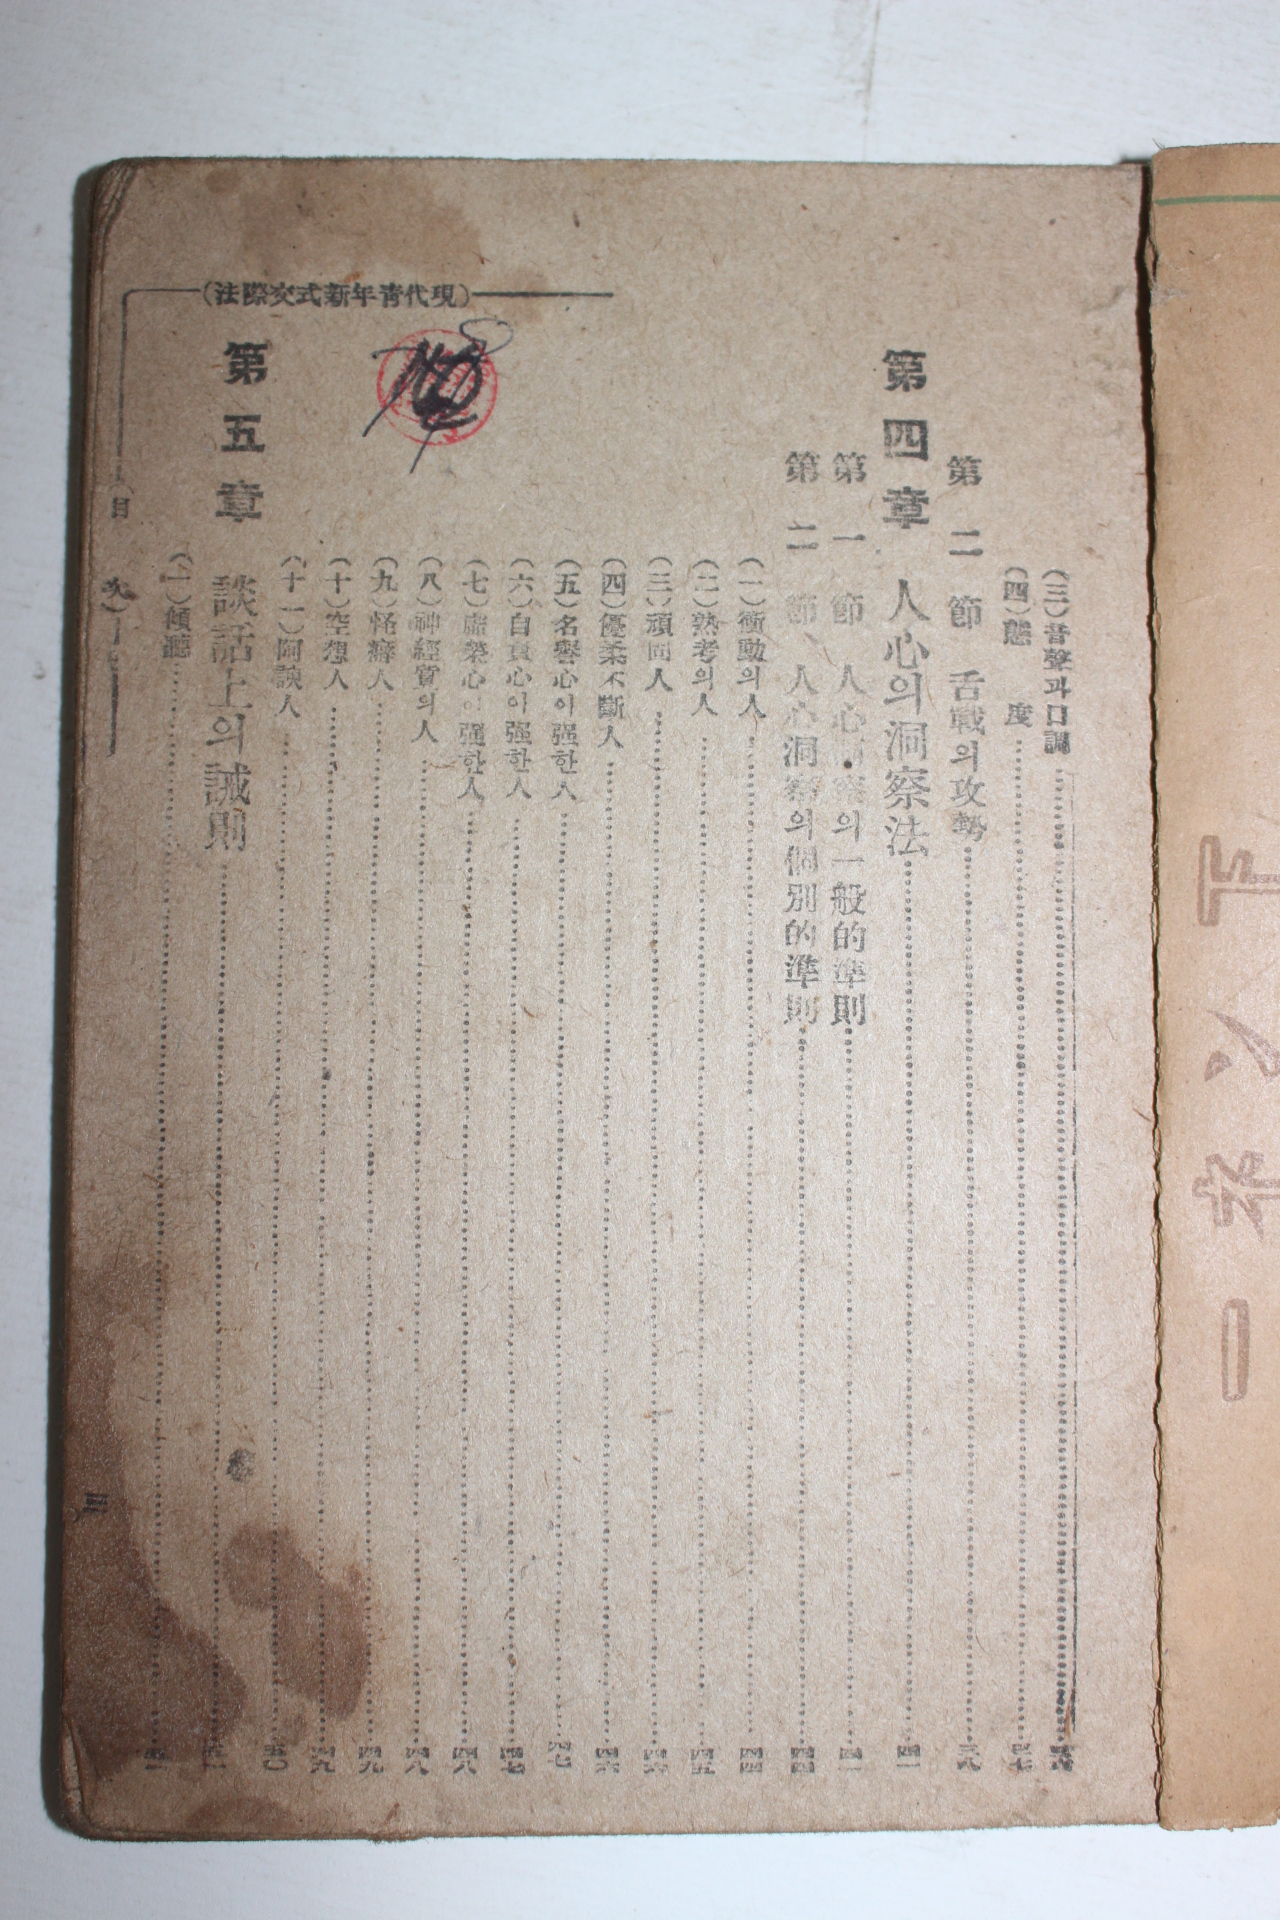 (現代靑年新式交際法)
(三)音聲과口調……三六
(四)態度……三七
第二節 舌戰의攻勢……三九
第四章 人心의洞察法……四一
第一節 人心洞察의一般的準則……四一
第二節 人心洞察의個別的準則……四四
(一)衝動의人……四四
(二)熟考의人……四五
(三)頑固人……四六
(四)優柔不斷人……四六
(五)名譽心이强한人……四七
(六)自負心이强한人……四七
(七)虛榮心이强한人……四八
(八)神經質의人……四八
(九)怪癖人……四九
(十)空想人……四九
(十一)阿諛人……五〇
第五章 談話上의誡則
(一)傾聽
(目次)
三